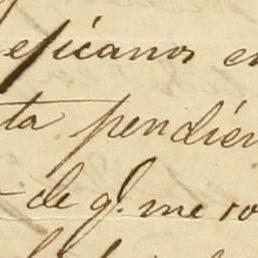 ejicanos en
ta pendien
de q.l me ro